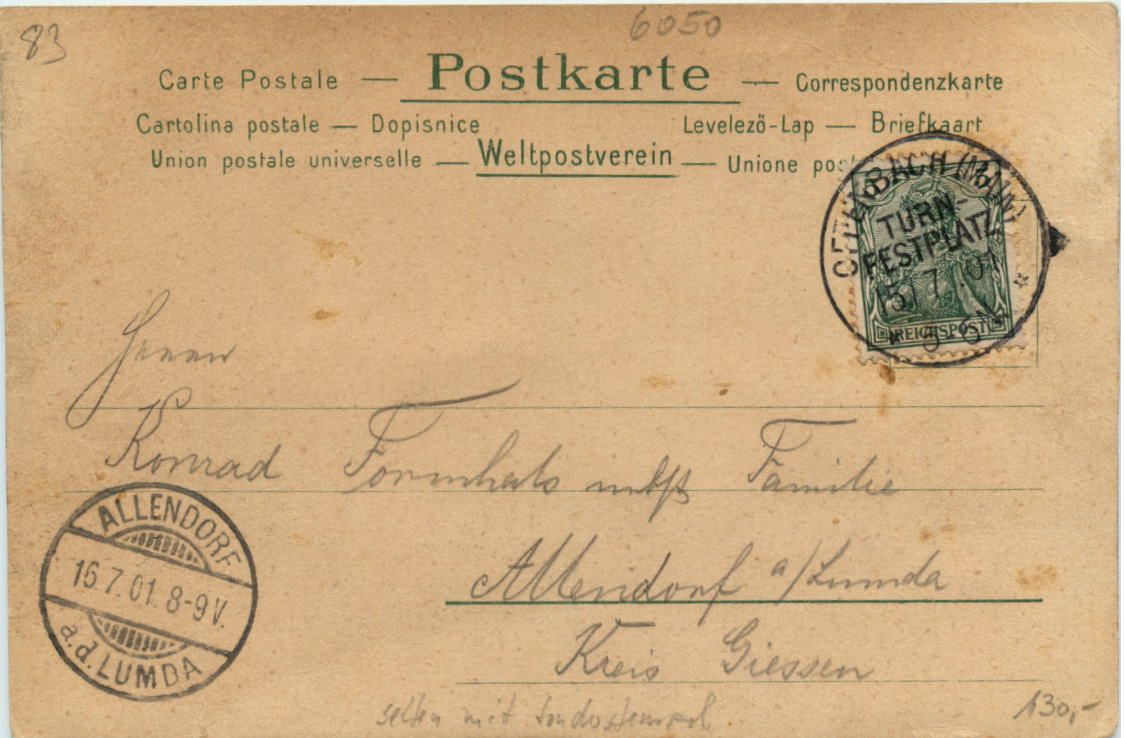 83
6050
Carte Postale — Postkarte — Correspondenzkarte
Cartolina postale — Dopisnice
Levelező-Lap — Briefkaart
Union postale universelle — Weltpostverein — Unione pos
OFFENBACH (MAIN)
TURN-
FESTPLATZ
15 7 01
5-6N
REICHSPOST
Herrn
Konrad Formhals nebst Familie
Allendorf a/Lumda
Kreis Giessen
ALLENDORF
16.7.01. 8-9V.
a.d. LUMDA
selten mit Sonderstempel
130,-